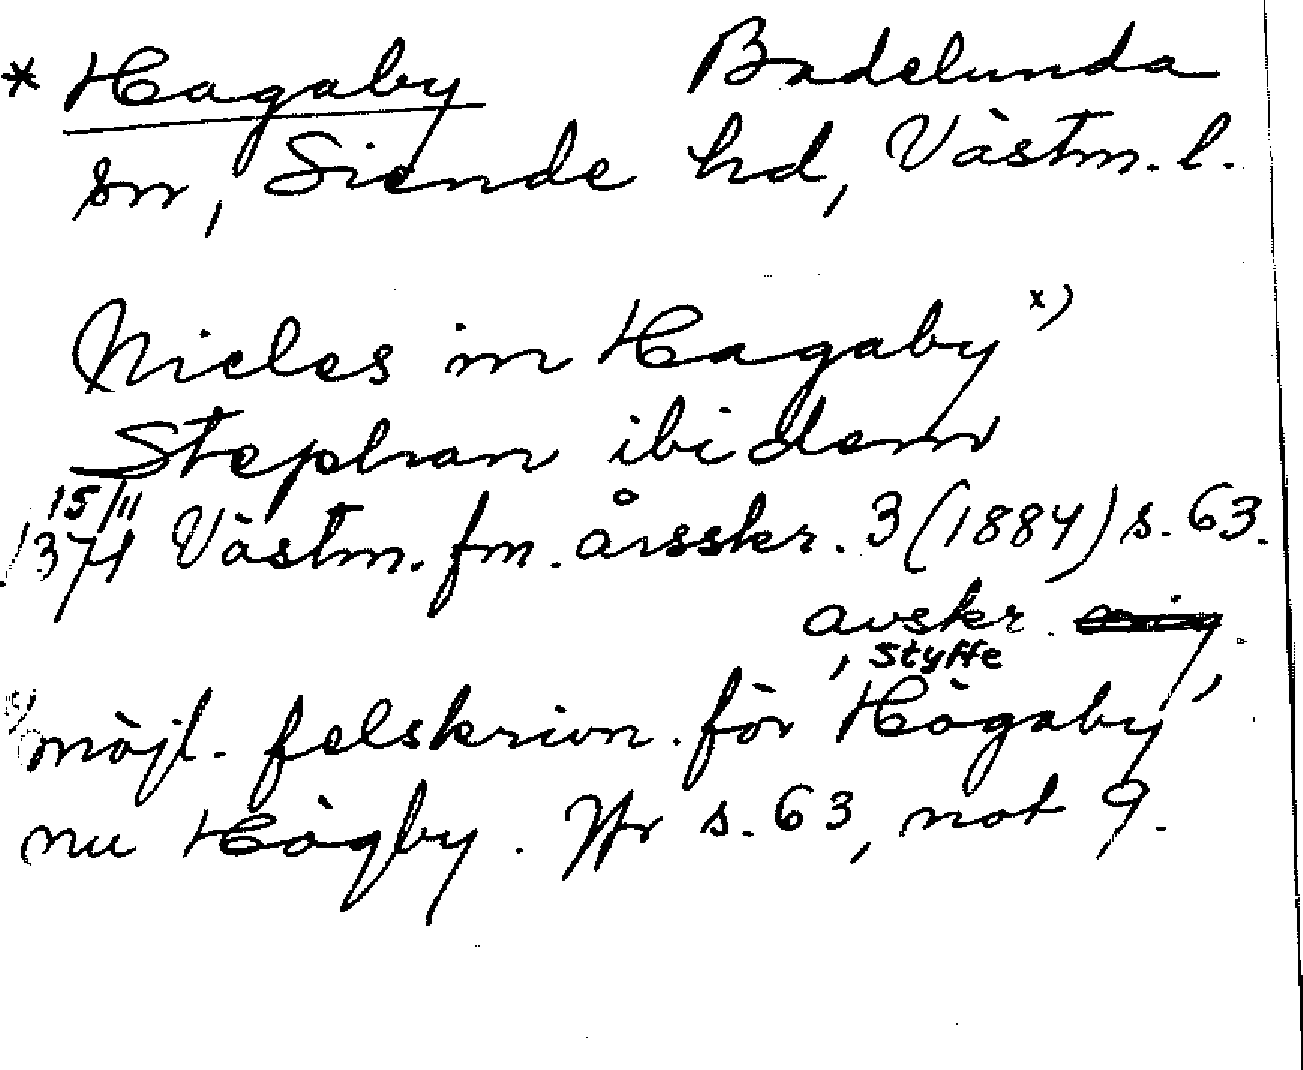 * Hagaby Badelunda
sn, Siende hd, Västm. l.
Nicles in Hagaby x)
Stephan ibidem
15/11
1371 Västm. fm. årsskr. 3 (1884) s. 63.
avskr.
, Styffe
möjl. felskrivn. för Högaby,
nu Högby. Jfr s. 63, not 9.